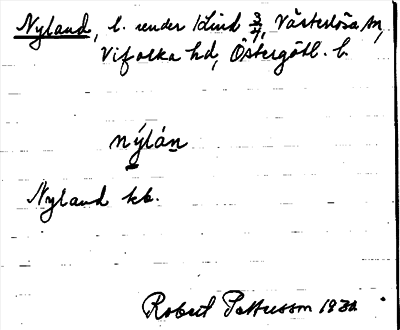 Nyland, l. under Lind 3/7, Västerlösa sn,
Vifolka hd, Östergötl. l.
nýlán
Nyland kb.
Robert Pettersson 1932